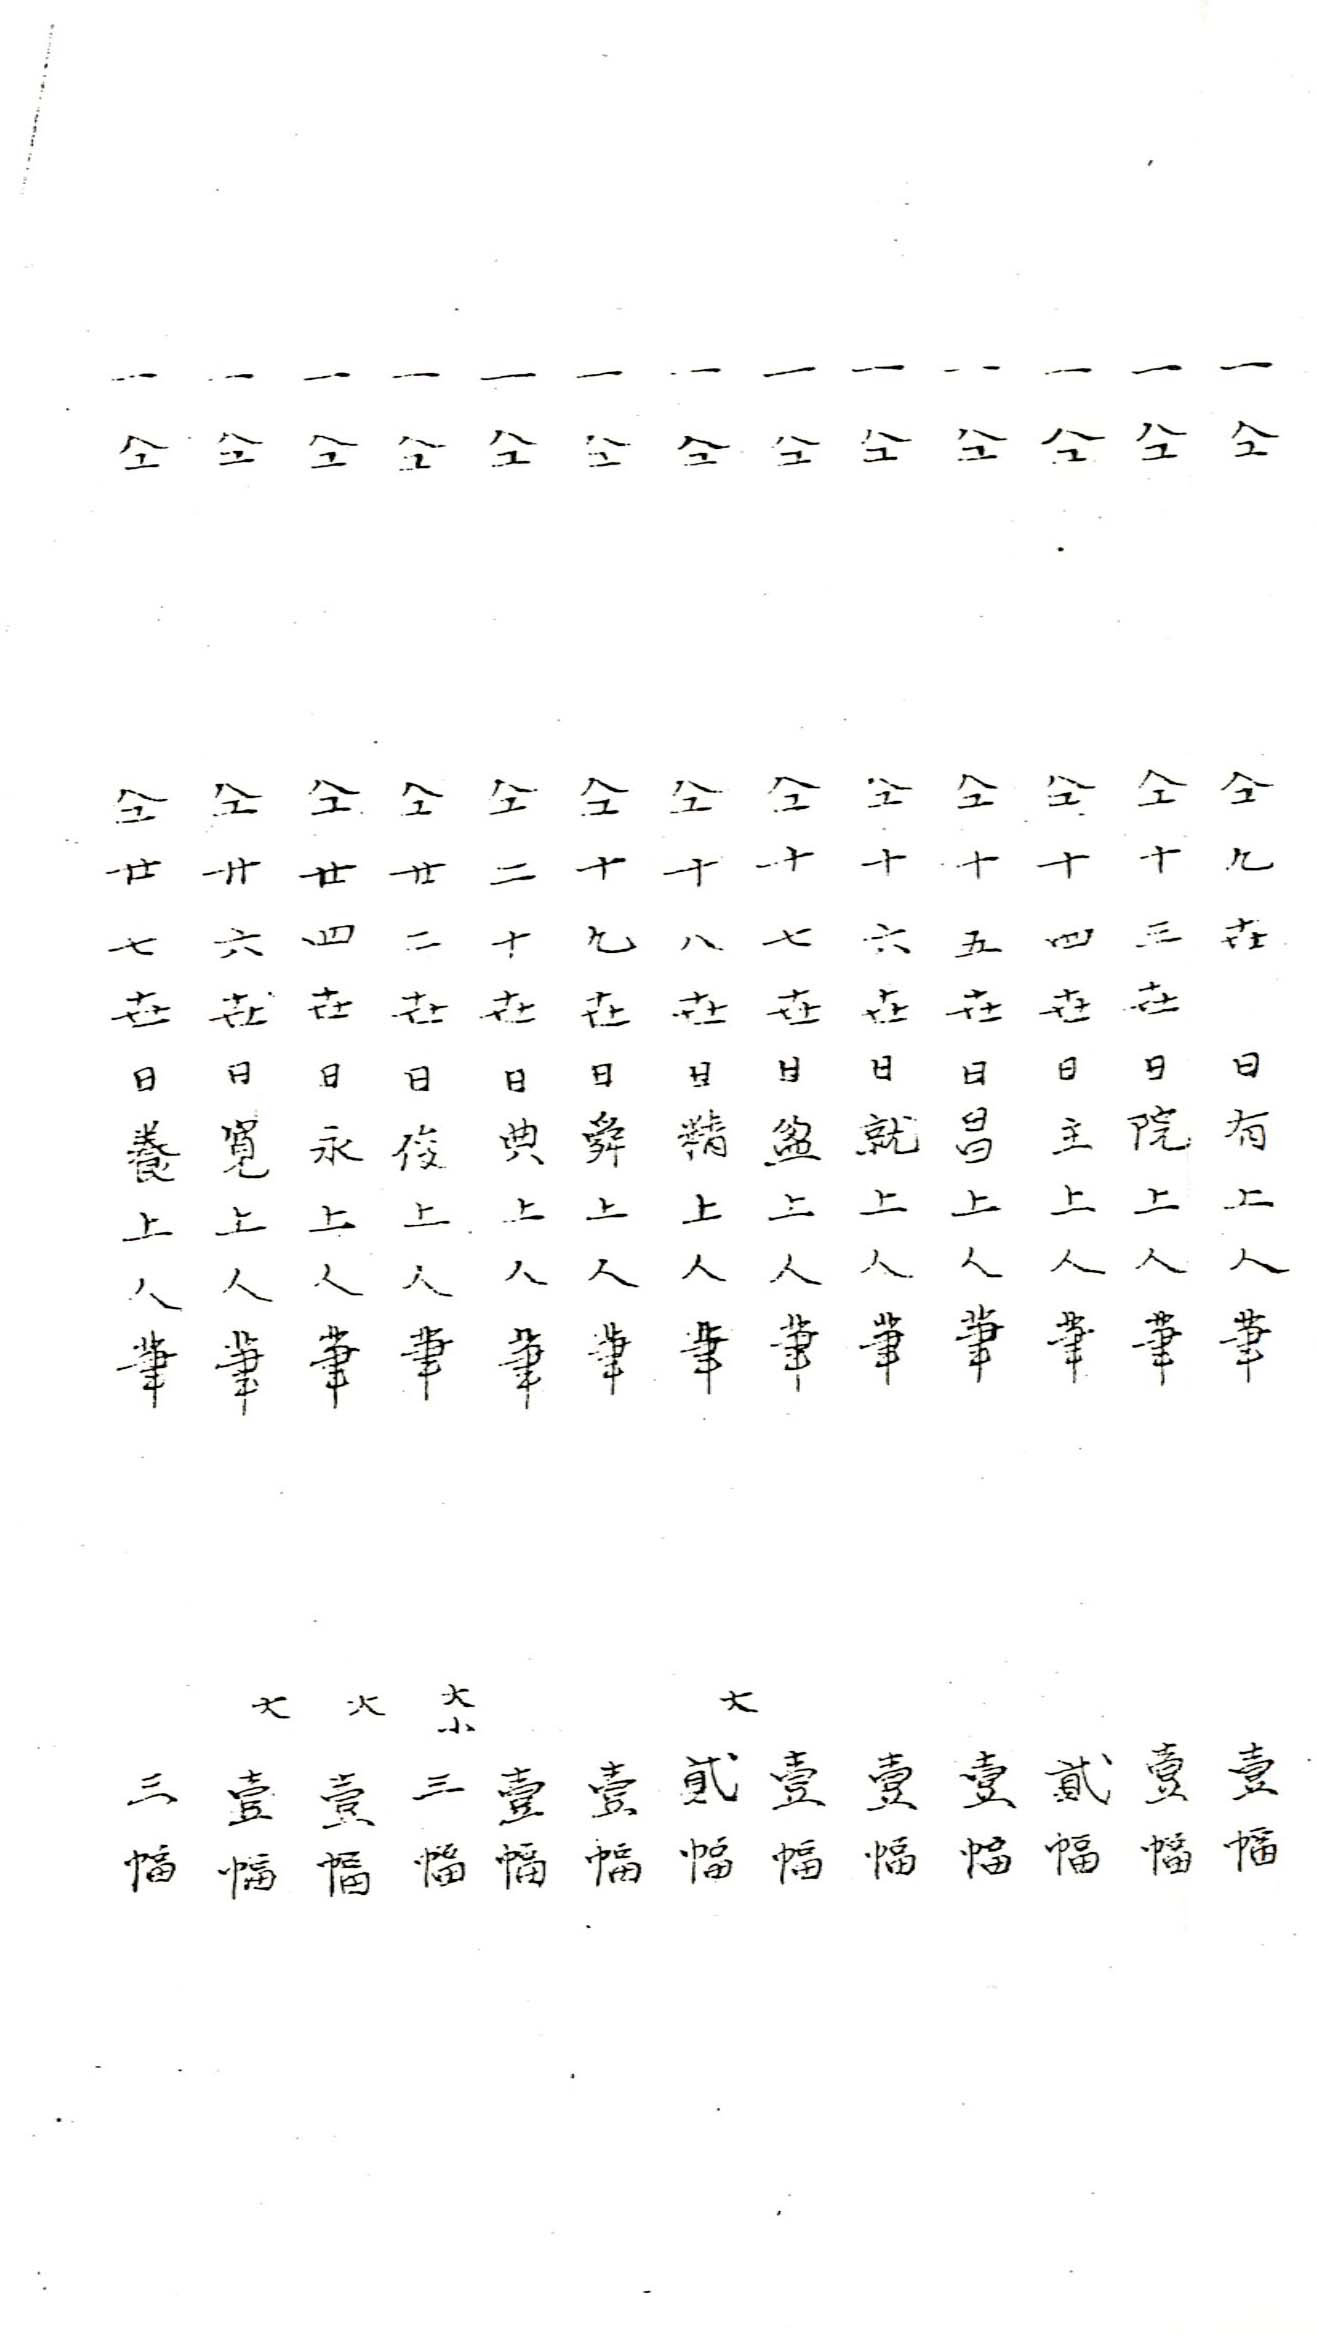 一仝　仝九世　日有上人筆　壹幅
一仝　仝十三世日院上人筆　壹幅
一仝　仝十四世日主上人筆　貳幅
一仝　仝十五世日昌上人筆　壹幅
一仝　仝十六世日就上人筆　壹幅
一仝　仝十七世日盈上人筆　壹幅
一仝　仝十八世日精上人筆　大貳幅
一仝　仝十九世日舜上人筆　壹幅
一仝　仝二十世日典上人筆　壹幅
一仝　仝廿二世日俊上人筆　大小三幅
一仝　仝廿四世日永上人筆　大壹幅
一仝　仝廿六世日寛上人筆　大壹幅
一仝　仝廿七世日養上人筆　三幅